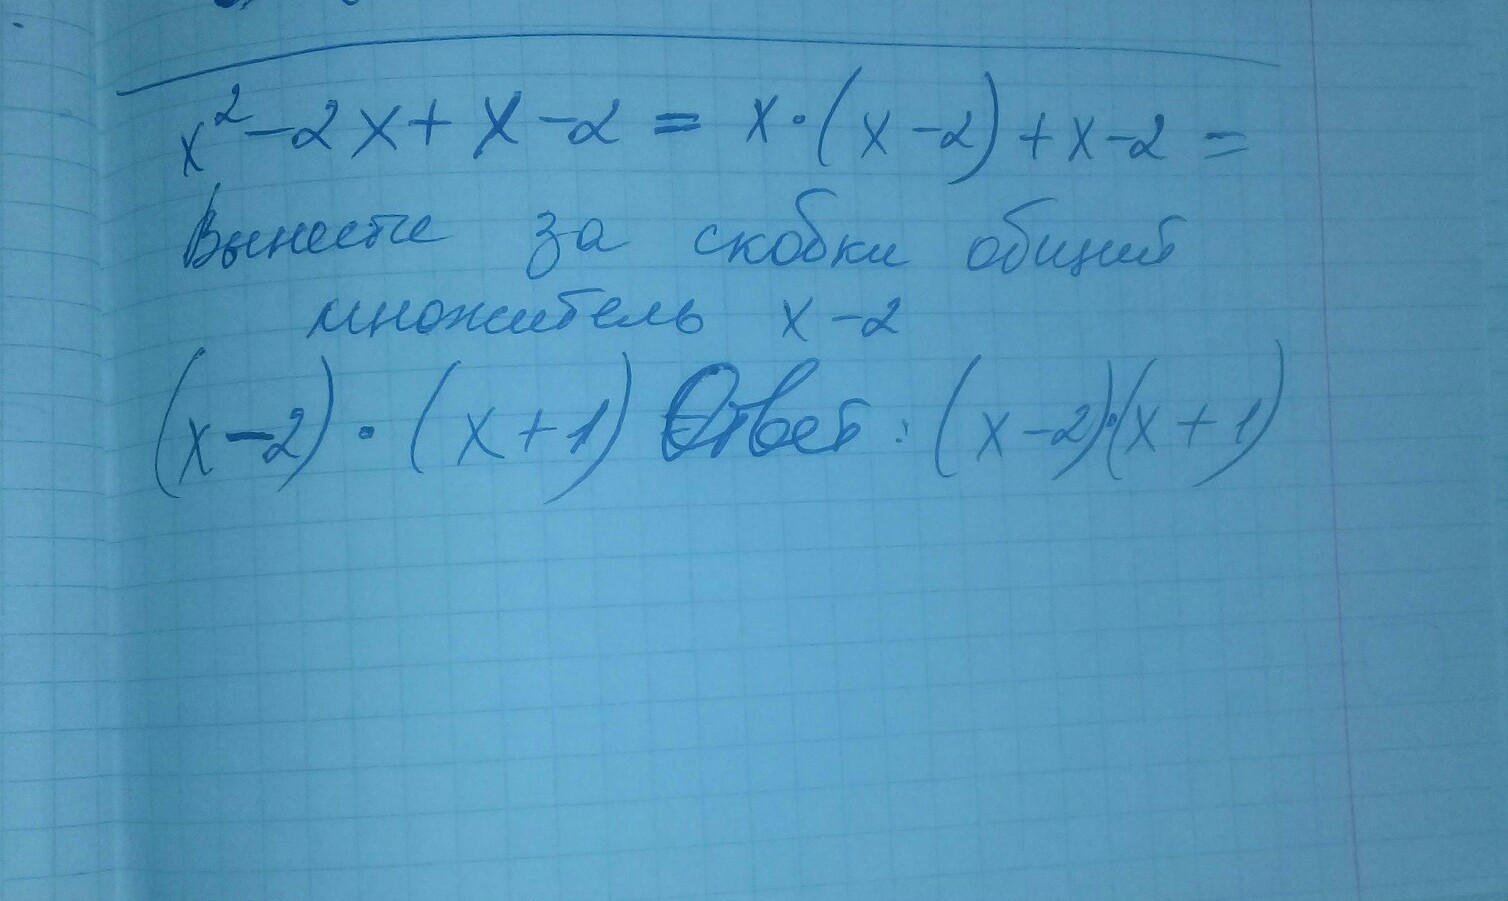 x² - 2x + x - 2 = x · (x - 2) + x - 2 =
Вынести за скобки общий
множитель x - 2
(x - 2) · (x + 1) Ответ : (x - 2)·(x + 1)